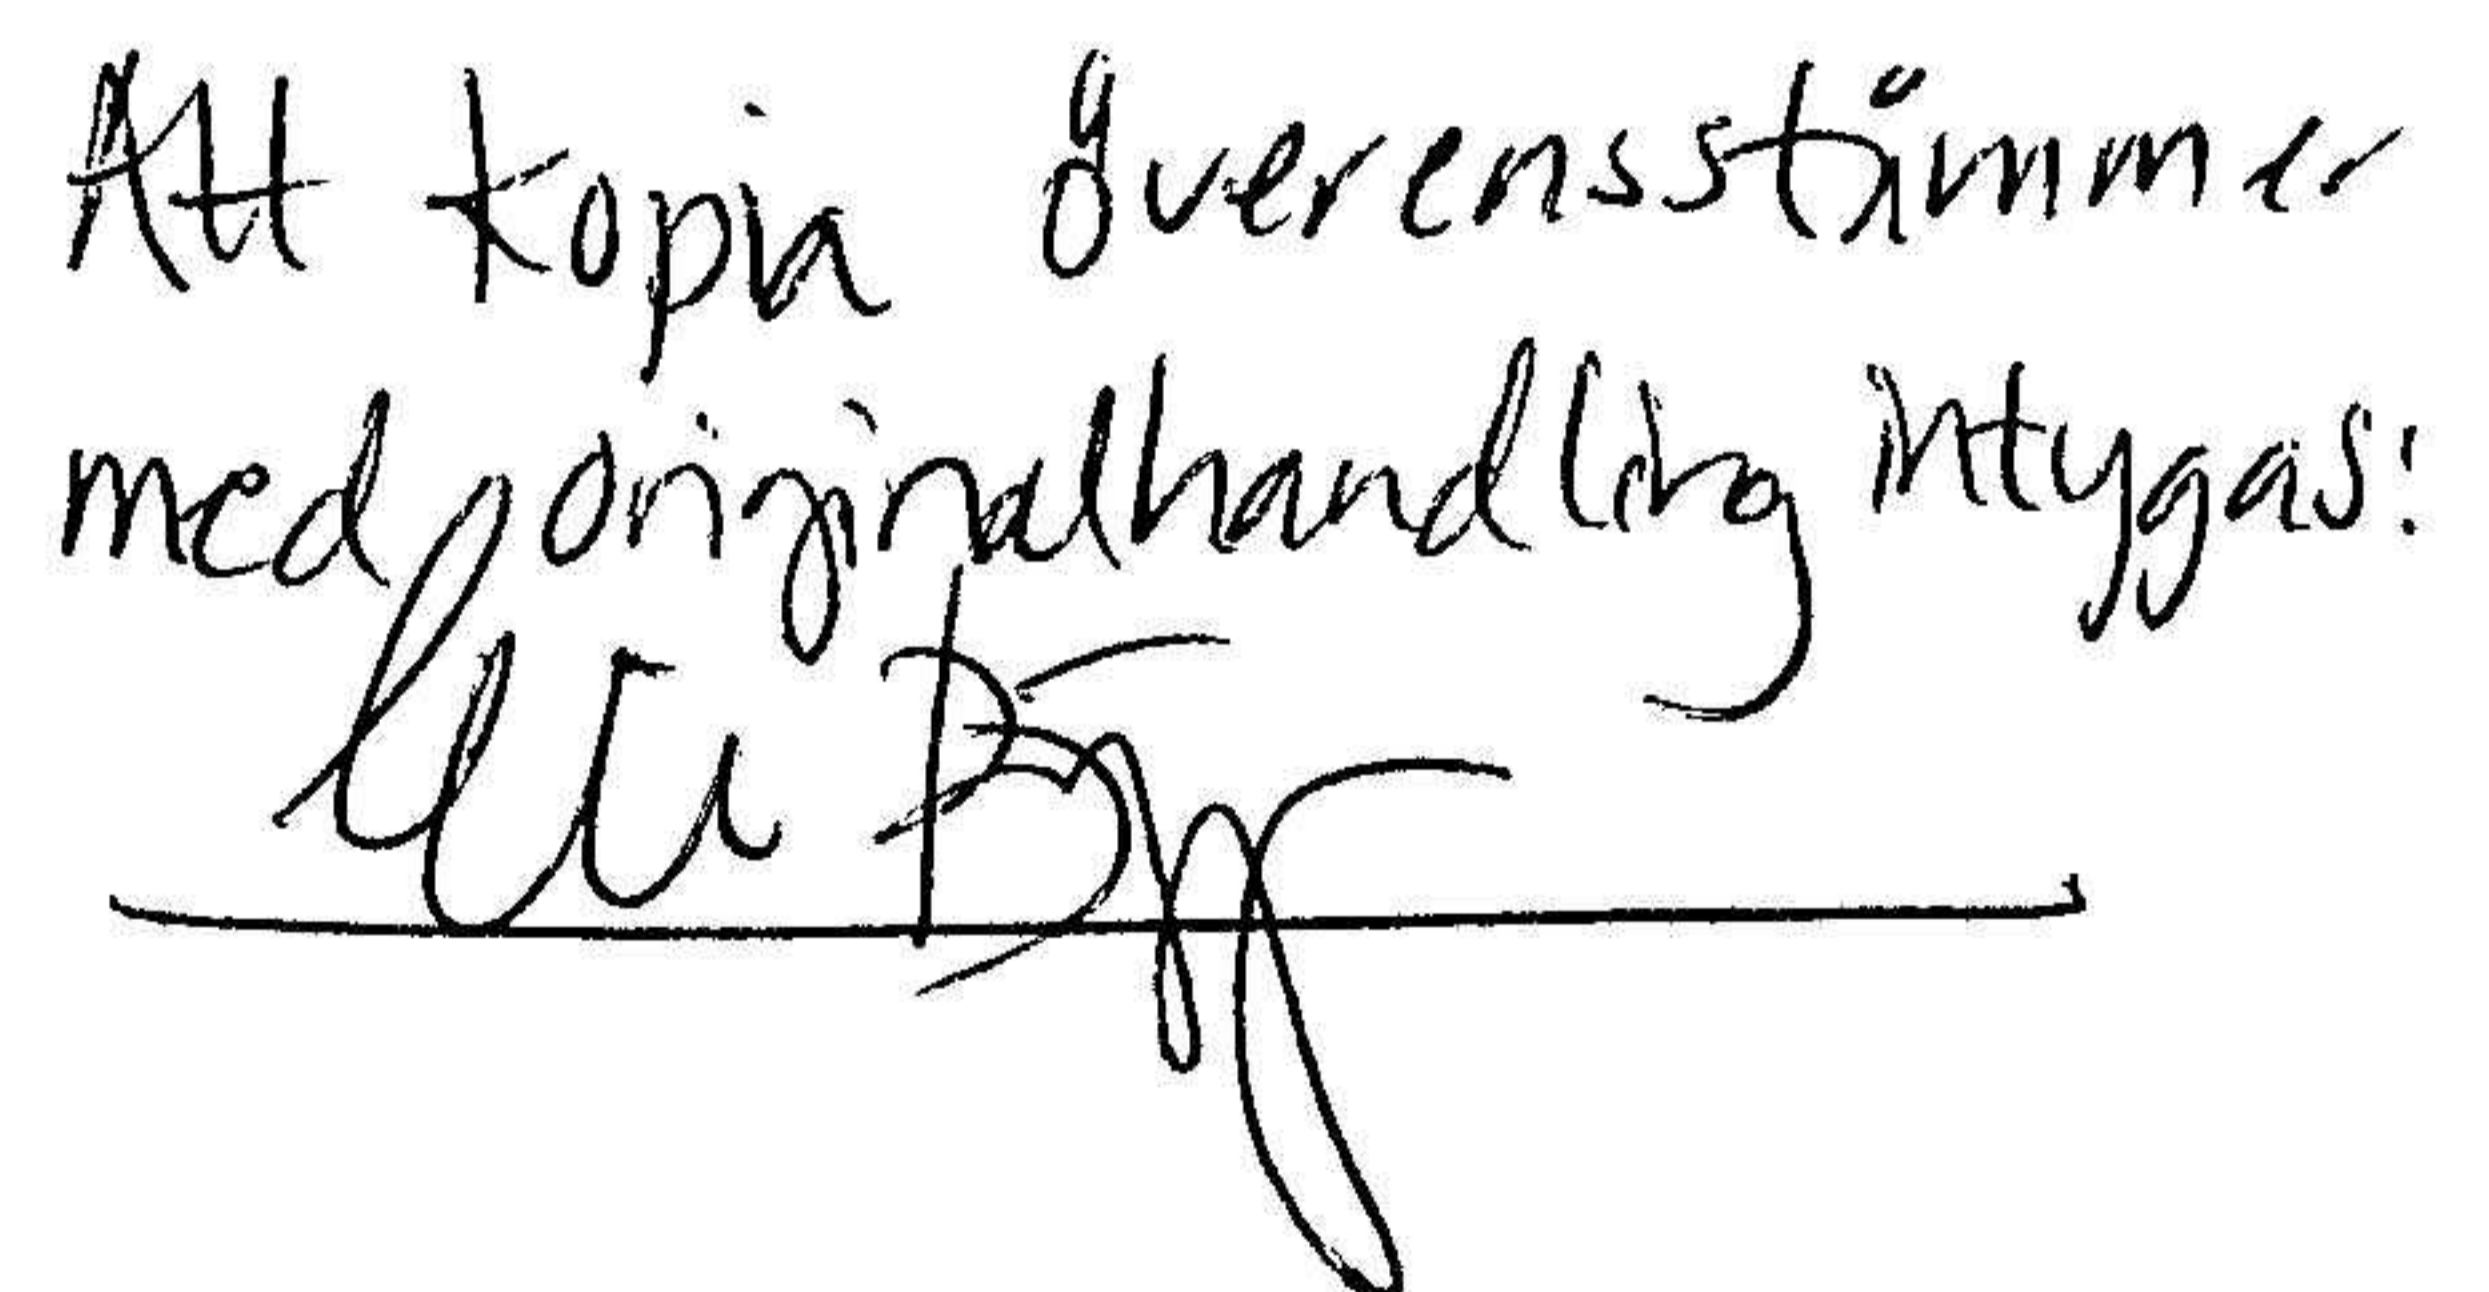 Att kopia överensstämmer
med originalhandling intygas: